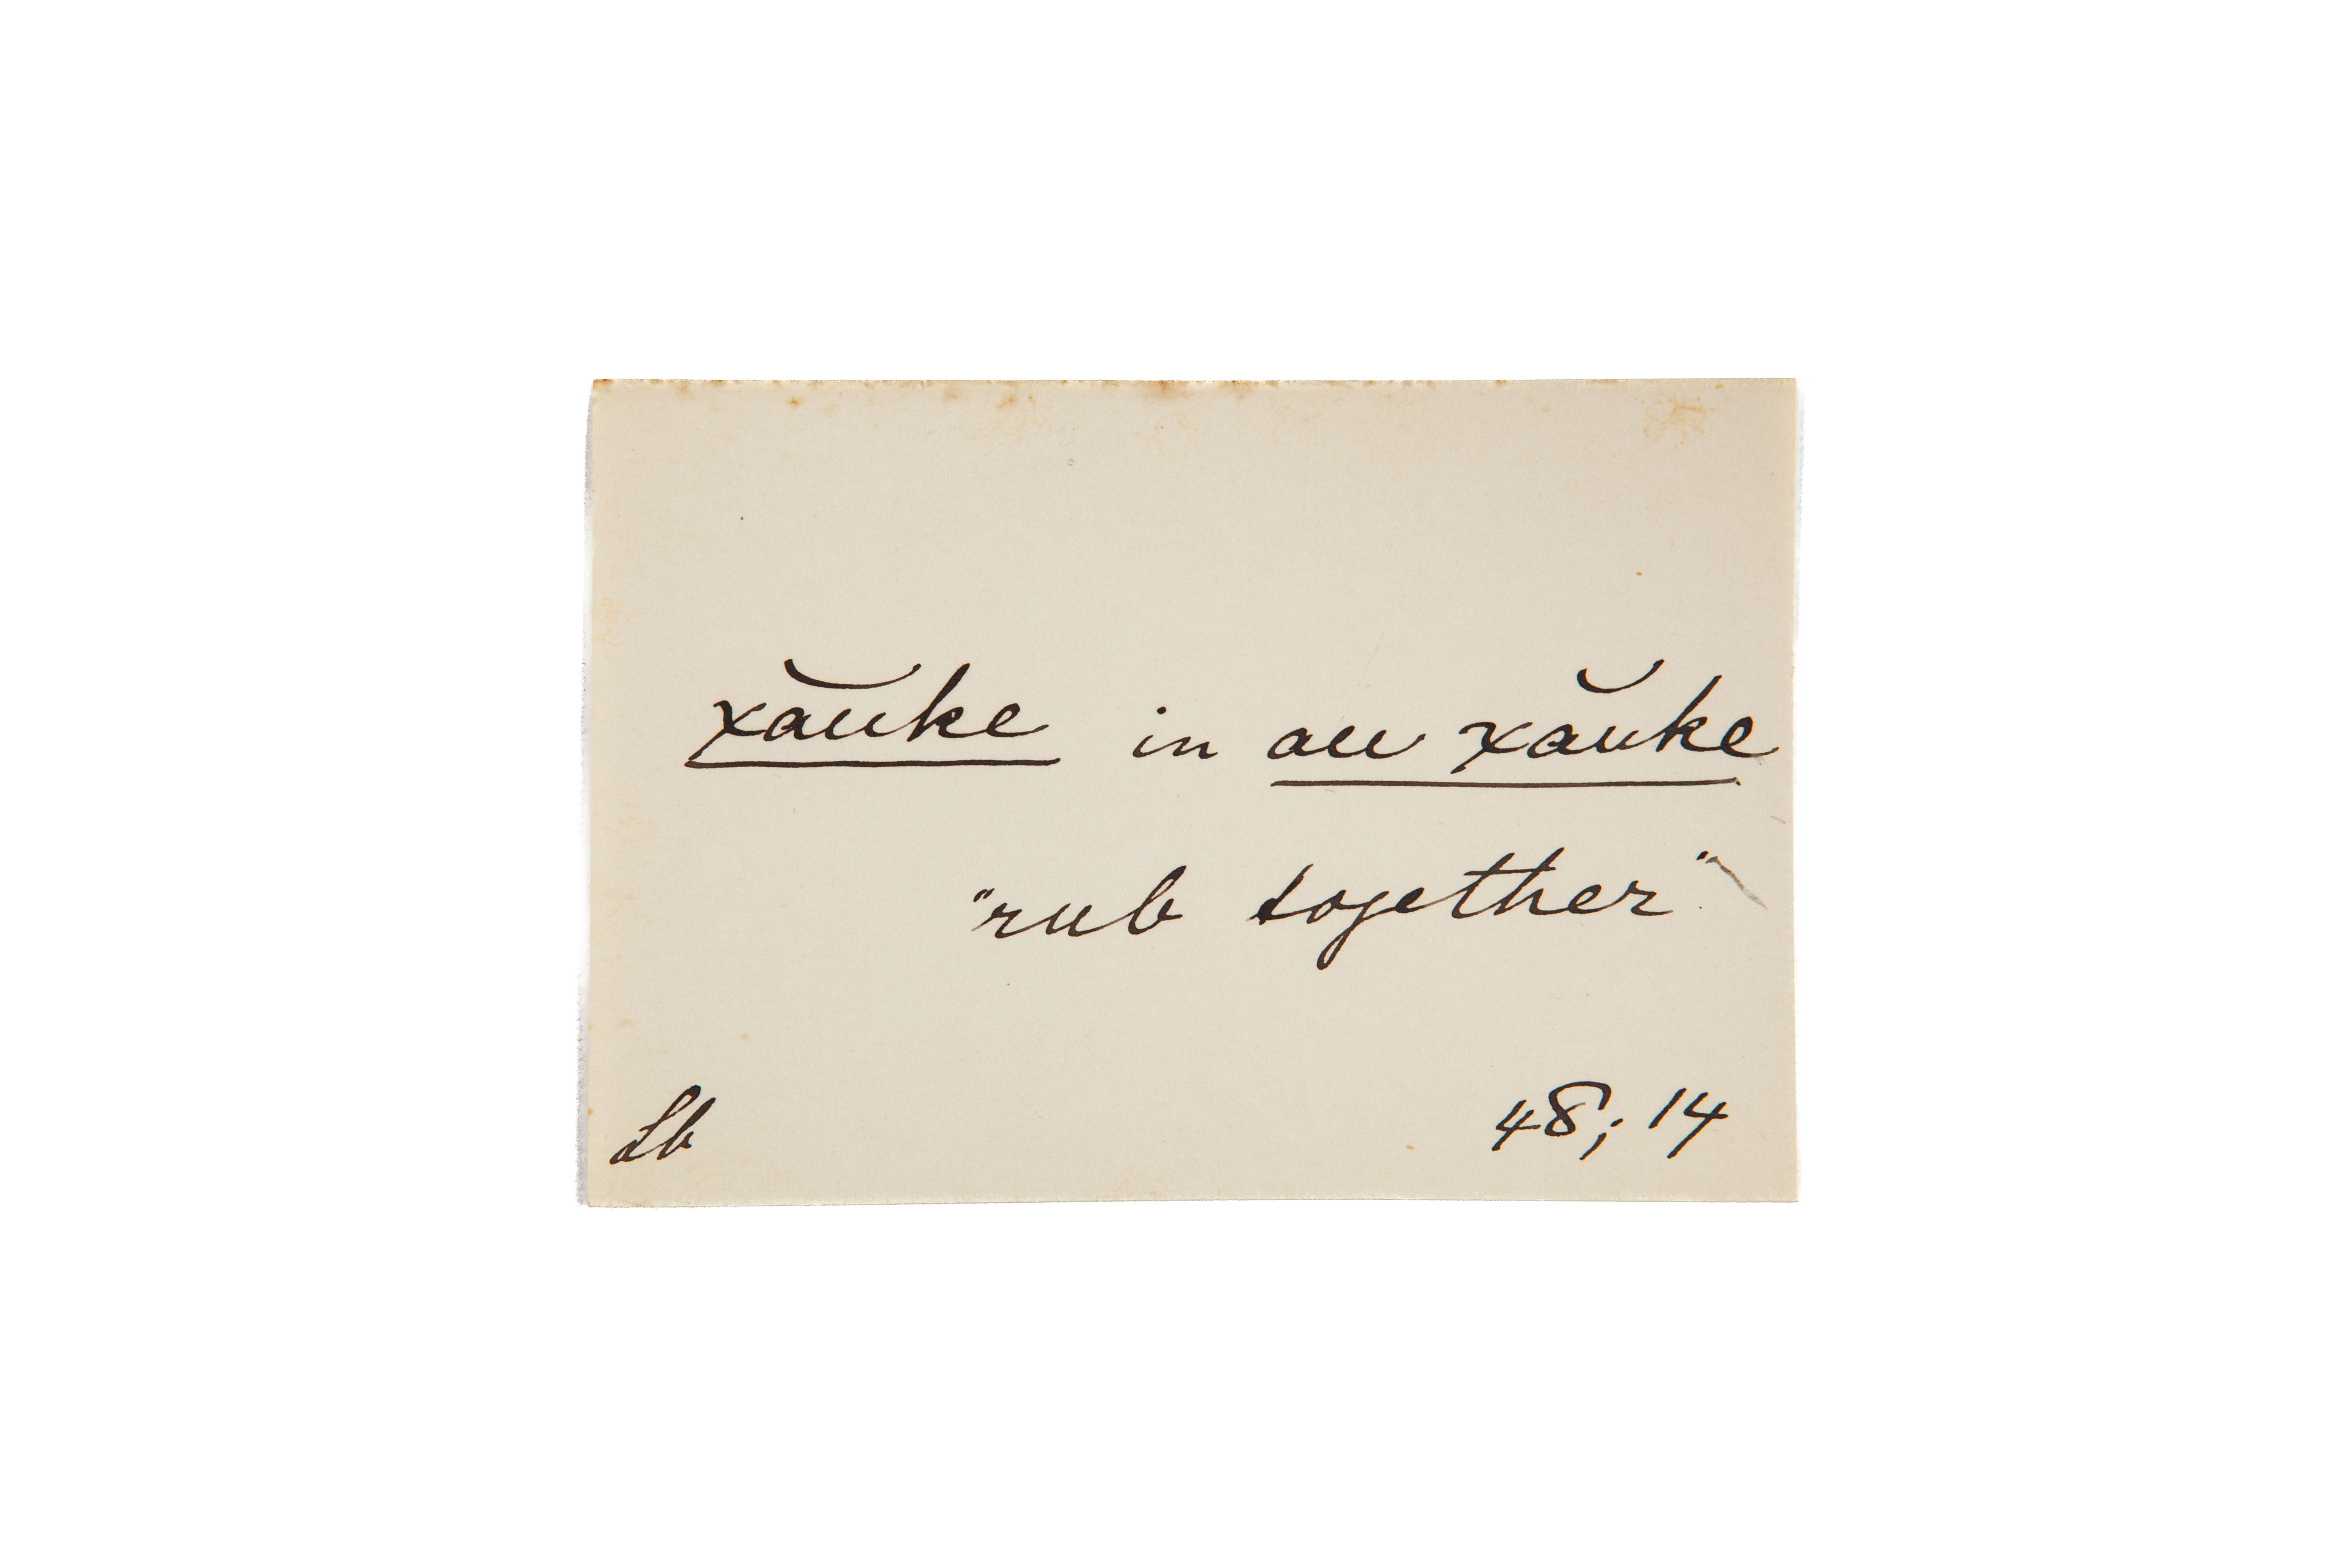 xa͝uke in au xa͝uke
"rub together"
Lb 48; 14